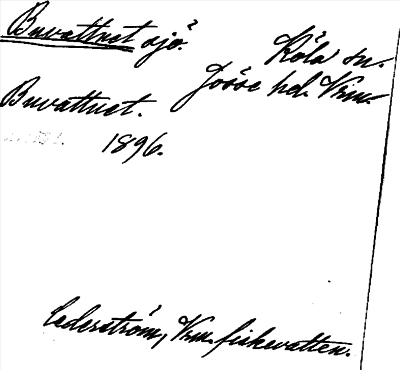 Buvattnet sjö.
Köla sn.
Jösse hd. Vrm.
Buvattnet.
1896.
Cederström, Vrm. fiskevatten.